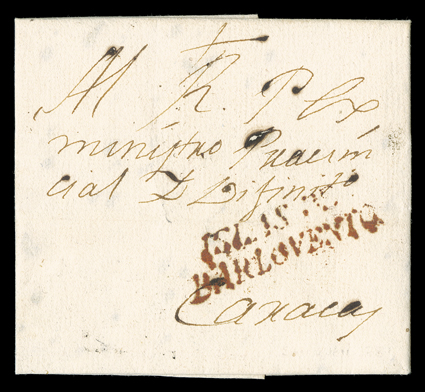 Al R. P. Ex
ministro Provin
cial D Difinito
ISLAS DE
BARLOVENTO
Caracas